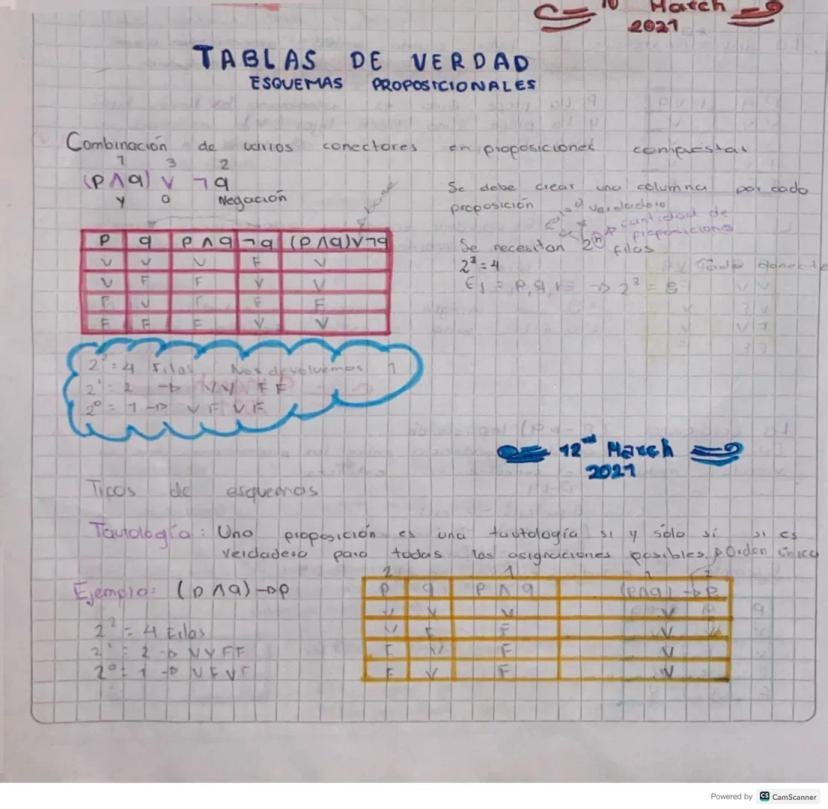 March
2021
TABLAS DE VERDAD
ESQUEMAS PROPOSICIONALES
Combinación de varios conectores en proposiciones compuestas
1 3 2
(p ∧ q) ∨ ¬q
y o Negación
Se debe crear una columna por cada
proposición
verdadero
cantidad de
proposiciones
Se necesitan 2ⁿ filas
2² = 4
Ej = p, q, r => 2³ = 8
p q p ∧ q ¬q (p ∧ q) ∨ ¬q
V V V F V
V F F V V
F V F F F
F F F V V
2² = 4 Filas Nos devolvemos 1
2¹ = 2 -> V V F F
2⁰ = 1 -> V F V F
12 March
2021
Tipos de esquemas
Tautología: Una proposición es una tautología si y sólo si si es
verdadero para todas las asignaciones posibles. Orden único
Ejemplo: (p ∧ q) -> p
2² = 4 Filas
2¹ = 2 -> V V F F
2⁰ = 1 -> V F V F
2 1
p q p ∧ q (p ∧ q) -> p
V V V V
V F F V
F V F V
F V F V
Powered by CS CamScanner